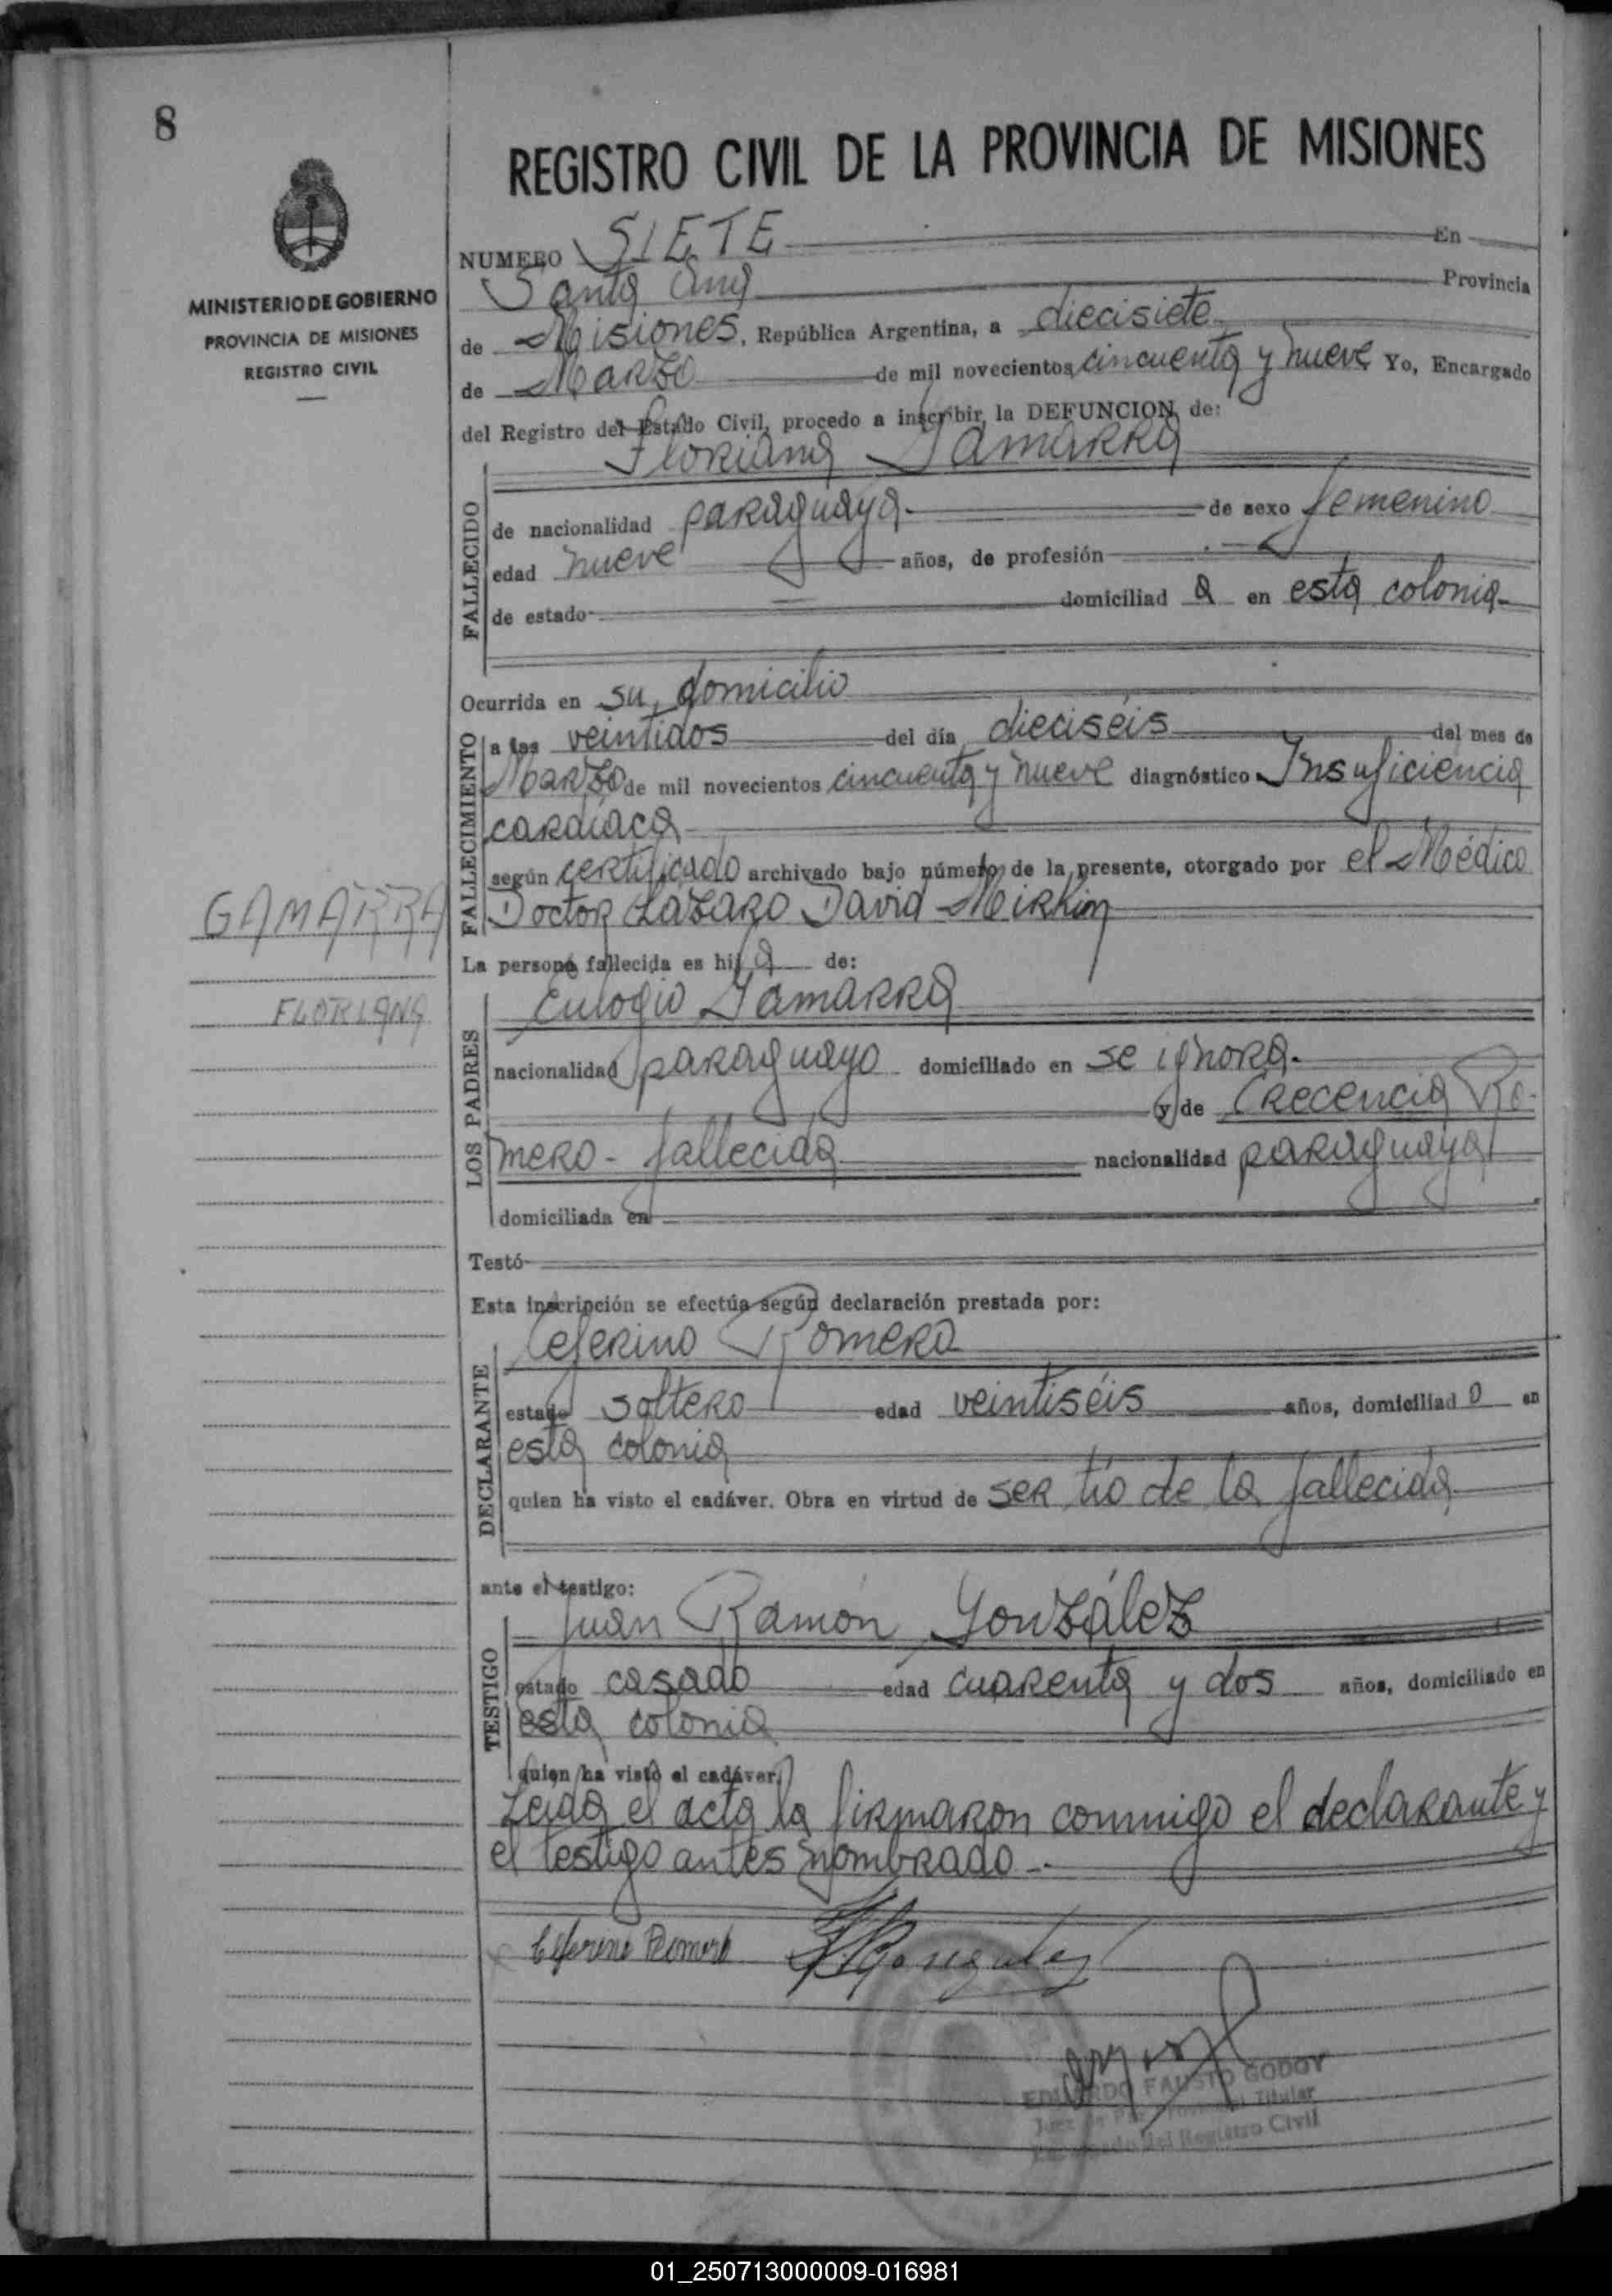 8
REGISTRO CIVIL DE LA PROVINCIA DE MISIONES
MINISTERIO DE GOBIERNO
PROVINCIA DE MISIONES
REGISTRO CIVIL
NUMERO SIETE En
Santa Ana Provincia
de Misiones, República Argentina, a diecisiete
de Marzo de mil novecientos cincuenta y nueve Yo, Encargado
del Registro del Estado Civil, procedo a inscribir, la DEFUNCION de:
Floriana Gamarra
FALLECIDO
de nacionalidad paraguaya.- de sexo femenino
edad nueve años, de profesión
de estado domiciliad a en esta colonia-
Ocurrida en su domicilio
FALLECIMIENTO
a las veintidos del día dieciséis del mes de
Marzo de mil novecientos cincuenta y nueve diagnóstico Insuficiencia
cardíaca
según certificado archivado bajo número de la presente, otorgado por el Médico
Doctor Lazaro David Mirkin
GAMARRA
FLORIANA
La persona fallecida es hij a de:
LOS PADRES
Eulogio Gamarra
nacionalidad paraguayo domiciliado en se ignora.-
y de Crecencia Ro-
mero - fallecida nacionalidad paraguaya
domiciliada en
Testó
Esta inscripción se efectúa según declaración prestada por:
DECLARANTE
Ceferino Romero
estado soltero edad veintiséis años, domiciliad o en
esta colonia
quien ha visto el cadáver. Obra en virtud de ser tío de la fallecida
ante el testigo:
TESTIGO
Juan Ramón González
estado casado edad cuarenta y dos años, domiciliado en
esta colonia
quien ha visto el cadáver.
Leida el acta la firmaron conmigo el declarante y
el testigo antes nombrado.-
Ceferino Romero J R Gonzalez
EDUARDO FAUSTO GODOY
Juez de Paz Titular
Encargado del Registro Civil
01_250713000009-016981